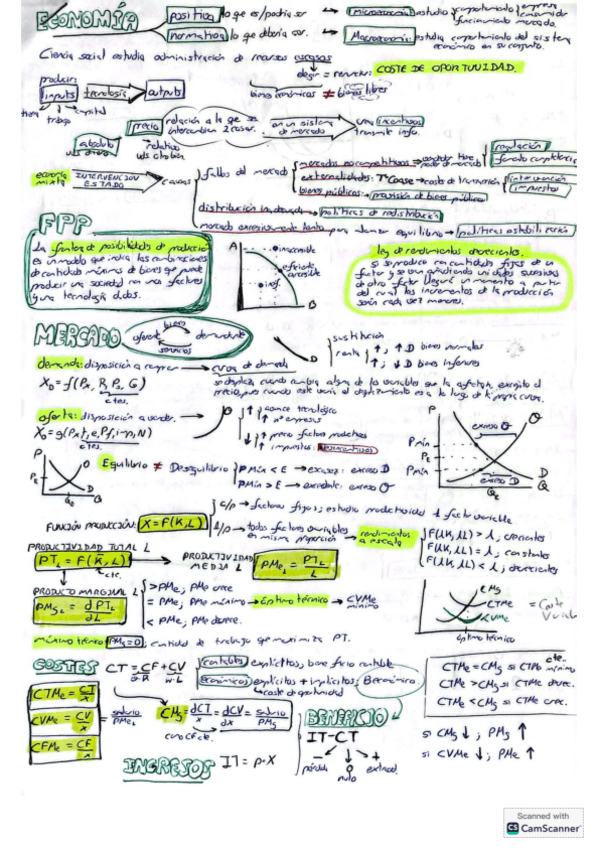 ECONOMÍA
positiva lo que es/podría ser
normativa lo que debería ser.
Microeconomía: estudia comportamiento empresa consumidor funcionamiento mercado.
Macroeconomía: estudia comportamiento del sistema económico en su conjunto.
Ciencia social estudia administración de recursos escasos
elegir = renunciar: COSTE DE OPORTUNIDAD.
bienes económicos ≠ bienes libres
producir:
inputs tecnología outputs
tierra trabajo capital
precio relación a la que se intercambian 2 cosas.
en un sistema de mercado
crea incentivos
transmite info.
absoluto
relativo
economía mixta
INTERVENCIÓN ESTADO
causas
fallos del mercado
mercados no competitivos
regulación
externalidades: Tª Coase costes de transacción
intervención
impuestos
bienes públicos: provisión de bienes públicos
distribución políticas de redistribución
mercado excesivamente lento para alcanzar equilibrio políticas estabilización
FPP
La frontera de posibilidades de producción
es un modelo que indica las combinaciones
de cantidades máximas de bienes que puede
producir una sociedad con unos factores
y una tecnología dados.
A
inaccesible
eficiente accesible
inef.
B
ley de rendimientos decrecientes.
si se produce con cantidades fijas de un
factor y se van añadiendo unidades sucesivas
de otro factor llegará un momento a partir
del cual los incrementos de la producción
serán cada vez menores.
MERCADO
bienes
oferente demandante
servicios
D
sustitución
renta ↑; ↑ D bienes normales
↑; ↓ D bienes inferiores
demanda: disposición a comprar curva de demanda
ctes.
se desplaza cuando cambia alguna de las variables que la afectan, excepto el
precio, pues cuando este varía el desplazamiento es a lo largo de la propia curva.
oferta: disposición a vender.
ctes.
O
↑ avance tecnológico
↑ nº empresas
↓ precio factores productivos
↓ impuestos
P
exceso O
O
Pmín
Pe
Pmín
exceso D
D
Qe
Q
P
O
Pe
D
Qe Q
Equilibrio ≠ Desequilibrio
PMín < E → escasez: exceso D
PMín > E → excedente: exceso O
FUNCIÓN PRODUCCIÓN: X = F(K,L)
c/p → factores fijos; estudia productividad 1 factor variable
l/p → todos factores variables en misma proporción
rendimientos a escala
F(λK, λL) > λ; crecientes
F(λK, λL) = λ; constantes
F(λK, λL) < λ; decrecientes
PRODUCTIVIDAD TOTAL L
PT_L = F(K̄, L)
cte.
PRODUCTIVIDAD MEDIA L
PMe_L = PT_L / L
PRODUCTO MARGINAL L
PMg_L = dPT_L / dL
> PMe; PMe crece
= PMe; PMe máximo → óptimo técnico → CVMe mínimo
< PMe; PMe decrece.
CMg
CTMe
CVMe
= Coste Variable
óptimo técnico
máximo técnico PMg=0; cantidad de trabajo que maximiza PT.
COSTES CT = CF + CV
r·K w·L
contables explícitos, bene ficio contable
económicos explícitos + implícitos; B económico
coste de oportunidad
CTMe = CT / X
CVMe = CV / X = salario / PMe_L
CFMe = CF / X
CMg = dCT / X = dCV / dX = salario / PMg
CTMe = CMg si CTMe mínimo
CTMe > CMg si CTMe decrec.
CTMe < CMg si CTMe crec.
BENEFICIO
IT - CT
- 0 +
pérdida nulo extraord.
INGRESOS IT = p·X
si CMg ↓; PMg ↑
si CVMe ↓; PMe ↑
Scanned with
CS CamScanner